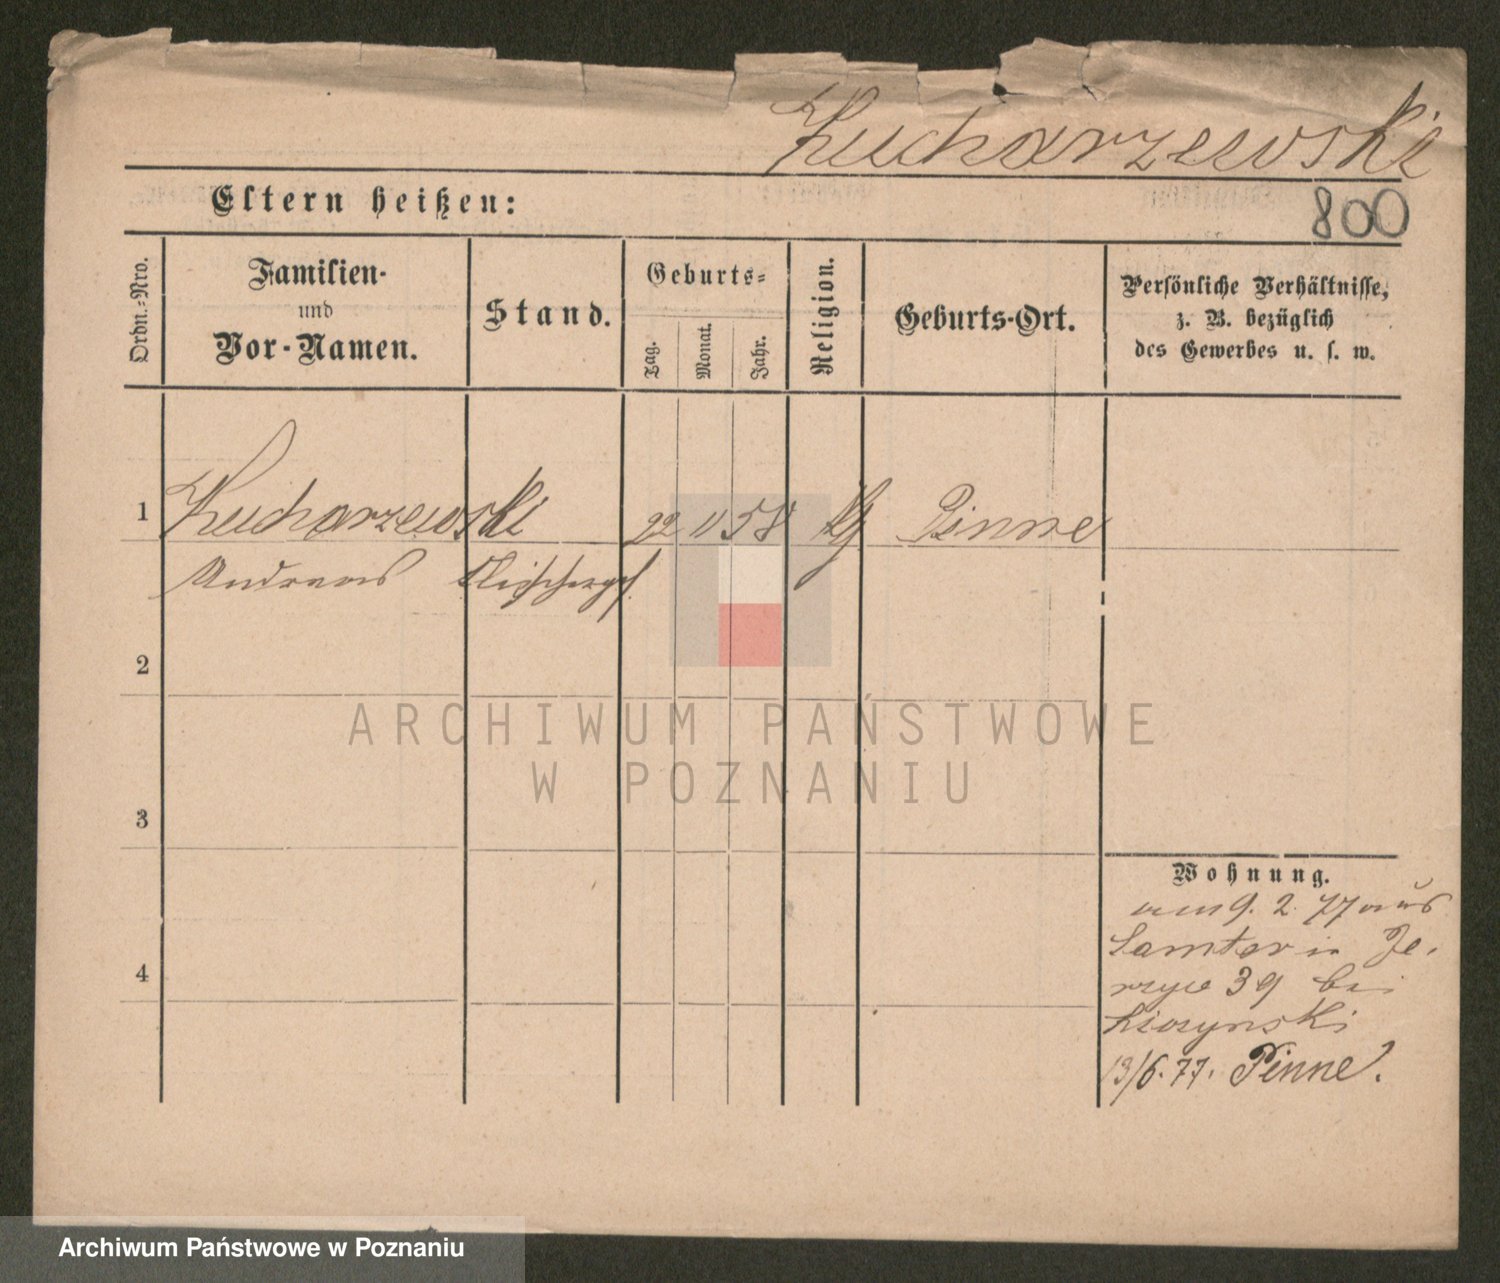 Kucharzewski
Eltern heißen:
800
Ordn.-Nro.
Familien-
und
Vor-Namen.
Stand.
Geburts-
Tag.
Monat.
Jahr.
Religion.
Geburts-Ort.
Persönliche Verhältnisse,
z. B. bezüglich
des Gewerbes u. s. w.
1 Kucharzewski 22 11 58 kg Pinne
Andreas Fleischerges.
2
3
4
Wohnung.
am 9. 2. 77 aus
Samter in Je-
rzyce 39 bei
13/6. 77. Pinne.
ARCHIWUM PAŃSTWOWE
W POZNANIU
Archiwum Państwowe w Poznaniu